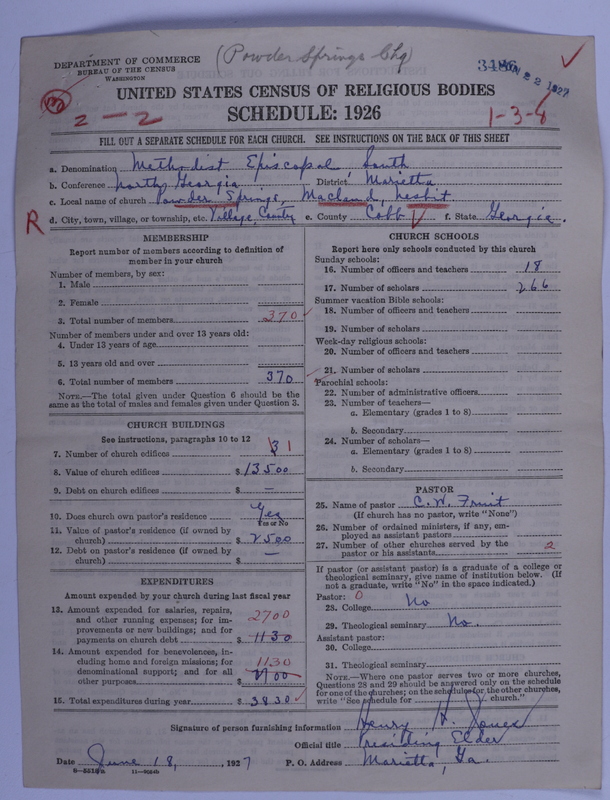 (Powder Springs Chg)
DEPARTMENT OF COMMERCE
BUREAU OF THE CENSUS
WASHINGTON
3486
2 2 1927
2-2
UNITED STATES CENSUS OF RELIGIOUS BODIES
SCHEDULE: 1926
1-3-8
FILL OUT A SEPARATE SCHEDULE FOR EACH CHURCH. SEE INSTRUCTIONS ON THE BACK OF THIS SHEET
a. Denomination Methodist Episcopal South
b. Conference North Georgia District Marietta
c. Local name of church Powder Springs, Macland, Nesbit
R
d. City, town, village, or township, etc. Village, Country e. County Cobb f. State Georgia.
MEMBERSHIP
Report number of members according to definition of
member in your church
Number of members, by sex:
1. Male
2. Female
3. Total number of members 370
Number of members under and over 13 years old:
4. Under 13 years of age
5. 13 years old and over
6. Total number of members 370
NOTE.—The total given under Question 6 should be the
same as the total of males and females given under Question 3.
CHURCH BUILDINGS
See instructions, paragraphs 10 to 12
7. Number of church edifices 3 1
8. Value of church edifices $ 13500
9. Debt on church edifices $ —
10. Does church own pastor's residence Yes
Yes or No
11. Value of pastor's residence (if owned by
church) $ 2500
12. Debt on pastor's residence (if owned by
church) $ —
EXPENDITURES
Amount expended by your church during last fiscal year
13. Amount expended for salaries, repairs,
and other running expenses; for im-
provements or new buildings; and for
payments on church debt 2700 $ 1130
14. Amount expended for benevolences, in-
cluding home and foreign missions; for
denominational support; and for all
other purposes 1130 $ 2700
15. Total expenditures during year $ 3830
CHURCH SCHOOLS
Report here only schools conducted by this church
Sunday schools:
16. Number of officers and teachers 18
17. Number of scholars 266
Summer vacation Bible schools:
18. Number of officers and teachers
19. Number of scholars
Week-day religious schools:
20. Number of officers and teachers
21. Number of scholars
Parochial schools:
22. Number of administrative officers
23. Number of teachers—
a. Elementary (grades 1 to 8)
b. Secondary
24. Number of scholars—
a. Elementary (grades 1 to 8)
b. Secondary
PASTOR
25. Name of pastor C. W. Fruit
(If church has no pastor, write "None")
26. Number of ordained ministers, if any, em-
ployed as assistant pastors
27. Number of other churches served by the
pastor or his assistants 2
If pastor (or assistant pastor) is a graduate of a college or
theological seminary, give name of institution below. (If
not a graduate, write "No" in the space indicated.)
Pastor: 0
28. College No
29. Theological seminary No.
Assistant pastor:
30. College
31. Theological seminary
NOTE.—Where one pastor serves two or more churches,
Questions 28 and 29 should be answered only on the schedule
for one of the churches; on the schedules for the other churches,
write "See schedule for church."
Signature of person furnishing information Henry H. Jones
Official title Presiding Elder
Date June 18, 1927 P. O. Address Marietta, Ga.